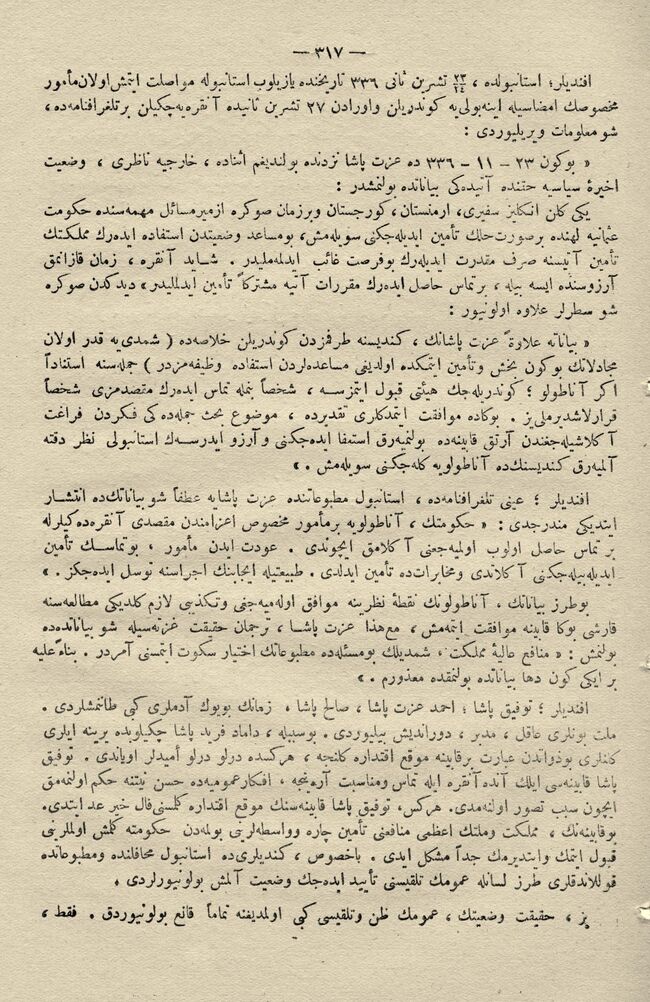 — ٣١٧ —
افنديلر؛ استانبولده ، ٢٣/٢٤ تشرين ثانى ٣٣٦ تاريخنده يازيلوب استانبوله مواصلت ايتمش اولان مأمور
مخصوصك امضاسيله اينه‌بولى‌يه كوندريلن واورادن ٢٧ تشرين ثانيده آنقره‌يه چكيلن برتلغرافنامه‌ده،
شو معلومات ويريليوردى :
« بوكون ٢٣ – ١١ – ٣٣٦ ده عزت پاشا نزدنده بولنديغم اثناده ، خارجيه ناظرى ، وضعيت
اخيرۀ سياسيه حقنده آتيده‌كى بياناتده بولنمشدر :
يكى كلن انكليز سفيرى، ارمنستان، كورجستان وبرزمان صوكره ازمير مسائل مهمه‌سنده حكومت
عثمانيه لهنده برصورت‌حلك تأمين ايديله‌جكنى سويله‌مش، بومساعد وضعيتدن استفاده ايده‌رك مملكتك
تأمين آتيسنه صرف مقدرت ايديله‌رك بوفرصت غائب ايدلمه‌ليدر . شايد آنقره ، زمان قازانمق
آرزوسنده ايسه بيله ، برتماس حاصل ايده‌رك مقررات آتيه مشتركاً تأمين ايدلمليدر» ديدكدن صوكره
شو سطرلر علاوه اولونيور :
« بياناته علاوةً عزت پاشانك ، كنديسنه طرفمزدن كوندريلن خلاصه‌ده ( شمدى‌يه قدر اولان
مجادلاتك بوكون بخش وتأمين ايتمكده اولديغى مساعده‌لردن استفاده وظيفه‌مزدر ) جمله‌سنه استناداً
اكر آناطولو ؛ كوندريله‌جك هيئتى قبول ايتمزسه ، شخصاً بنمله تماس ايده‌رك مقصدمزى شخصاً
قرارلاشديرملى‌يز . بوكاده موافقت ايتمدكلرى تقديرده ، موضوع بحث جمله‌ده‌كى فكردن فراغت
آكلاشيله‌جغندن آرتق قابينه‌ده بولنميه‌رق استعفا ايده‌جكنى وآرزو ايدرسه‌ك استانبولى نظر دقته
آلميه‌رق كنديسنك‌ده آناطولويه كله‌جكنى سويله‌مش . »
افنديلر ؛ عينى تلغرافنامه‌ده ، استانبول مطبوعاتنده عزت پاشايه عطفاً شو بياناتك‌ده انتشار
ايتديكى مندرجدى : « حكومتك ، آناطولويه برمأمور مخصوص اعزامندن مقصدى آنقره‌ده‌كيلرله
بر تماس حاصل اولوب اولميه‌جغنى آكلامق ايچوندى . عودت ايدن مأمور ، بوتماسك تأمين
ايديله‌بيله‌جكنى آكلاتدى ومخابرات‌ده تأمين ايدلدى . طبيعتيله ايجابنك اجراسنه توسل ايده‌جكز . »
بوطرز بياناتك ، آناطولونك نقطۀ نظرينه موافق اوله‌ميه‌جغنى وتكذيبى لازم كلديكى مطالعه‌سنه
قارشى بوكا قابينه موافقت ايتمه‌مش ، مع‌هذا عزت پاشا ، ترجمان حقيقت غزته‌سيله شو بياناتده‌ده
بولنمش : « منافع عاليۀ مملكت ، شمديلك بومسئله‌ده مطبوعاتك اختيار سكوت ايتمسنى آمردر . بناءً عليه
بر ايكى كون دها بياناتده بولنمقده معذورم . »
افنديلر ؛ توفيق پاشا ؛ احمد عزت پاشا ، صالح پاشا ، زمانك بويوك آدملرى كبى طانتمشلردى .
ملت بونلرى عاقل ، مدبر ، دورانديش بيليوردى . بوسببله ، داماد فريد پاشا چكيلوبده يرينه ايلرى
كلنلرى بوذواتدن عبارت برقابينه موقع اقتداره كلنجه ، هركسده درلو درلو أميدلر اوياندى . توفيق
پاشا قابينه‌سى ايلك آنده آنقره ايله تماس ومناسبت آرمنجه ، افكارعموميه‌ده حسن نيتنه حكم اولنمه‌مق
ايچون سبب تصور اولنه‌مدى. هركس، توفيق پاشا قابينه‌سنك موقع اقتداره كلمسنى فال خير عد ايتدى.
بوقابينه‌نك ، مملكت وملتك اعظمى منافعنى تأمين چاره وواسطه‌لرينى بولمه‌دن حكومته كلمش اولملرينى
قبول ايتمك وايتديرمك جداً مشكل ايدى . باخصوص ، كنديلرى‌ده استانبول محافلنده ومطبوعاتده
قوللاندقلرى طرز لسانله عمومك تلقيسنى تأييد ايده‌جك وضعيت آلمش بولونيورلردى .
بز ، حقيقت وضعيتك ، عمومك ظن وتلقيسى كبى اولمديغنه تماماً قانع بولونيوردق . فقط ،